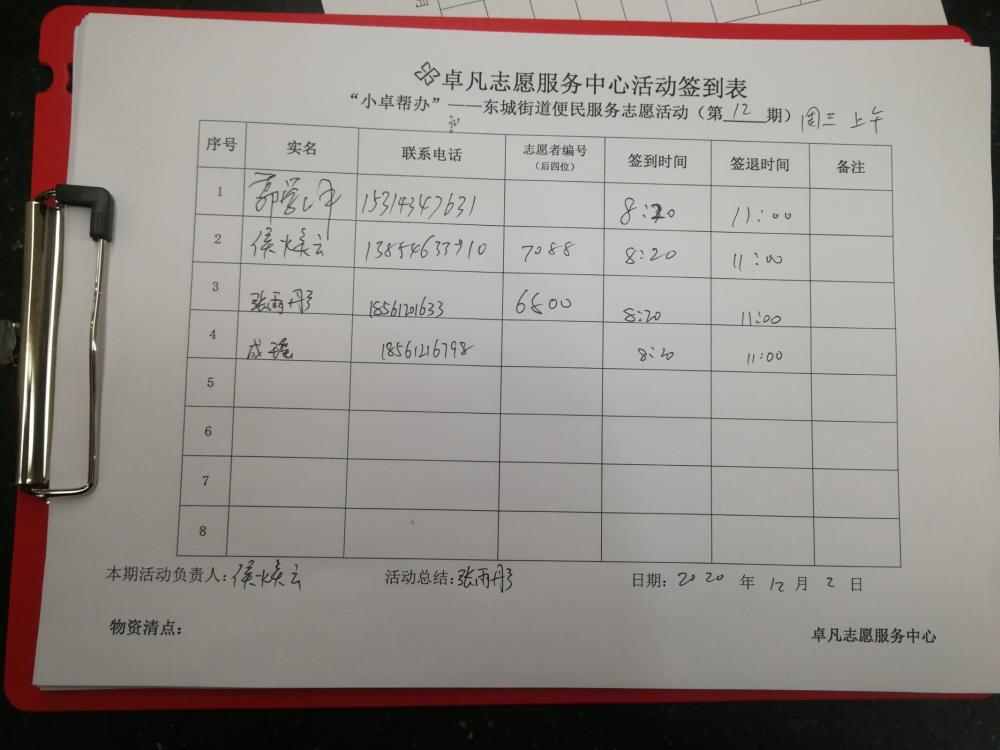 卓凡志愿服务中心活动签到表
“小卓帮办”——东城街道便民服务志愿活动（第12期）周三 上午
序号 实名 联系电话 志愿者编号（后四位） 签到时间 签退时间 备注
1 郭学 15314347631 8:20 11:00
2 侯焕云 13854633910 7088 8:20 11:00
3 张雨彤 18561201633 6800 8:20 11:00
4 成瑶 18561216798 8:20 11:00
5
6
7
8
本期活动负责人：侯焕云 活动总结：张雨彤 日期：2020 年 12 月 2 日
物资清点： 卓凡志愿服务中心